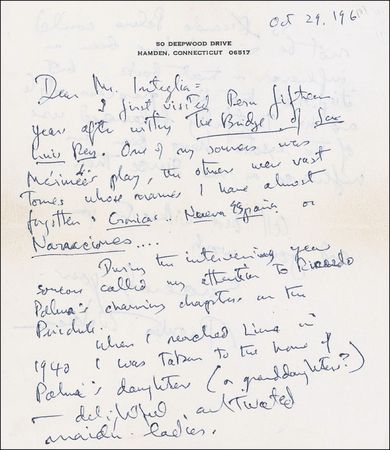 Oct 29, 196
50 DEEPWOOD DRIVE
HAMDEN, CONNECTICUT 06517
Dear Mr.
I first visited Peru fifteen
years after writing The Bridge of San
Luis Rey. One of my sources was
Mérimée's play, the other was vast
Tomes whose names I have almost
forgotten: Cronicas Nueva España or
Narraciones....
During the intervening year
someone called my attention to Ricardo
Palma's charming chapters on the
Perichole.
When I reached Lima in
1940 I was taken to the home of
Palma's daughters (or granddaughters?)
— delightful cultivated
maiden ladies.